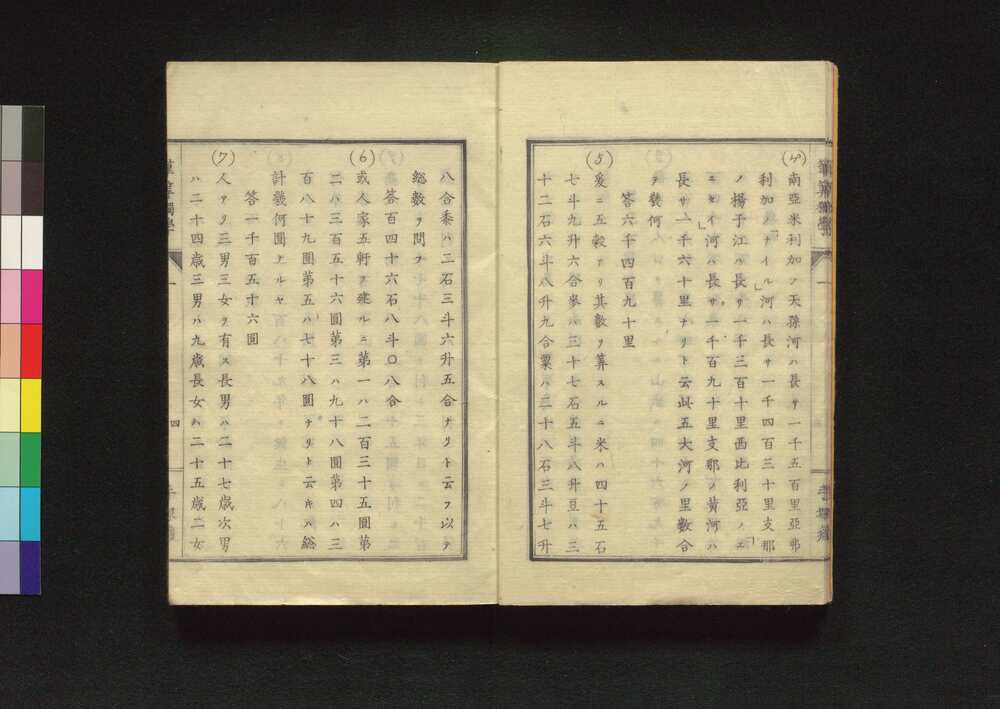 (4) 南亞米利加ノ天孫河ハ長サ一千五百里亞弗
利加ノ「ナイル河ハ長サ一千四百三十里支那
ノ揚子江ハ長サ一千三百十里西比利亞ノ「エ
ニセイ河ハ長サ一千百九十里支那ノ黄河ハ
長サ一千六十里ナリト云此五大河ノ里數合
ヲ幾何
答六千四百九十里
(5) 爰ニ五穀アリ其數ヲ算スルニ米ハ四十五石
七斗九升六合麥ハ三十七石五斗八升豆ハ三
十二石六斗八升九合粟ハ二十八石三斗七升
八合黍ハ二石三斗六升五合ナリト云フ以テ
総數ヲ問フ
答百四十六石八斗〇八合
(6) 或人家五軒ヲ建ルニ第一ハ二百三十五圓第
二ハ三百五十六圓第三ハ九十八圓第四ハ三
百八十九圓第五ハ七十八圓ナリト云キハ総
計幾何圓ナルヤ
答一千百五十六圓
(7) 人アリ三男三女ヲ有ス長男ハ二十七歳次男
ハ二十四歳三男ハ九歳長女ハ二十五歳二女
四